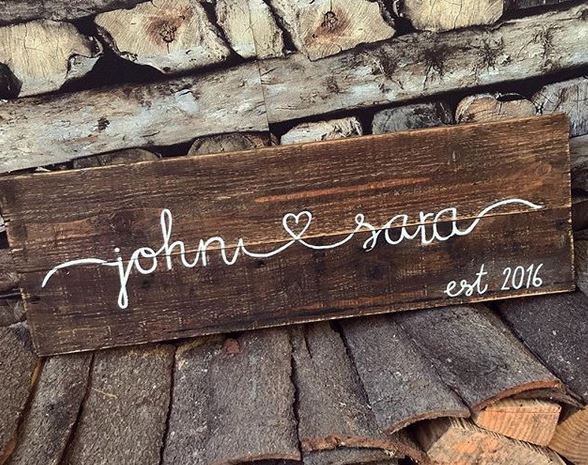 john ♡ sara
est 2016